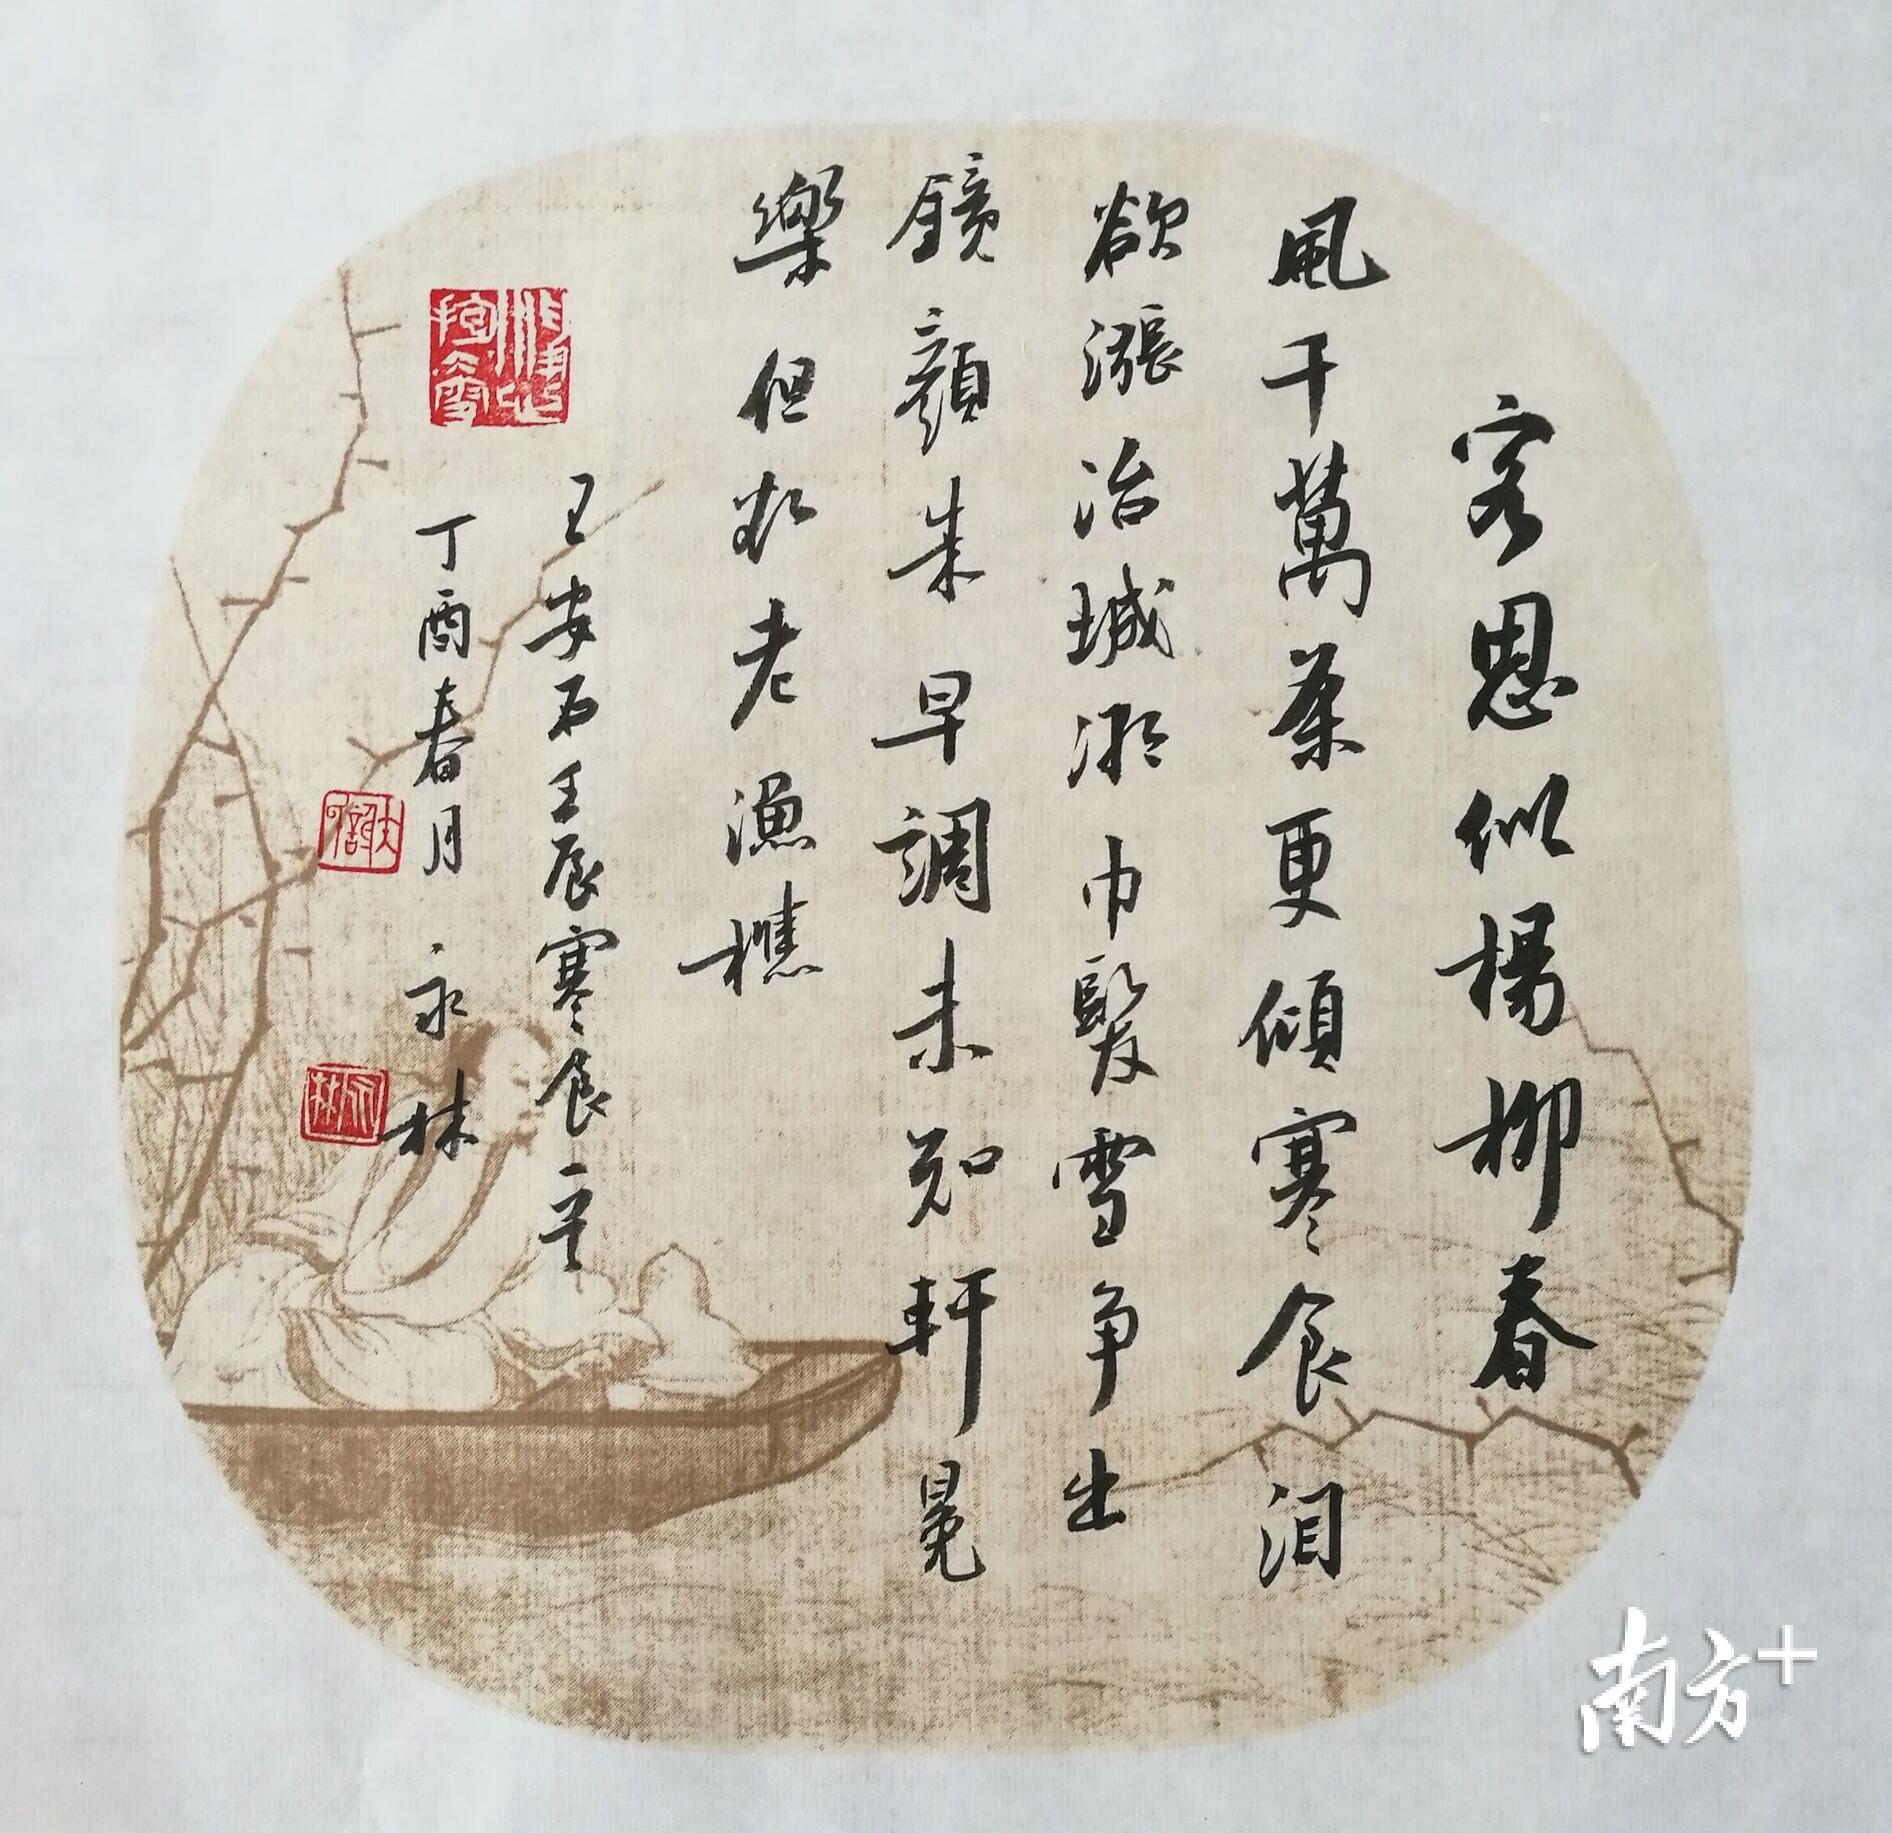 客恩似楊柳春
風千萬條更傾寒食泪
欲漲冶城潮巾髮雪争出
鏡顏朱早調未知軒冕
樂但欲老漁樵
王安石壬辰寒食一首
丁酉春月 永林
永林
南方+